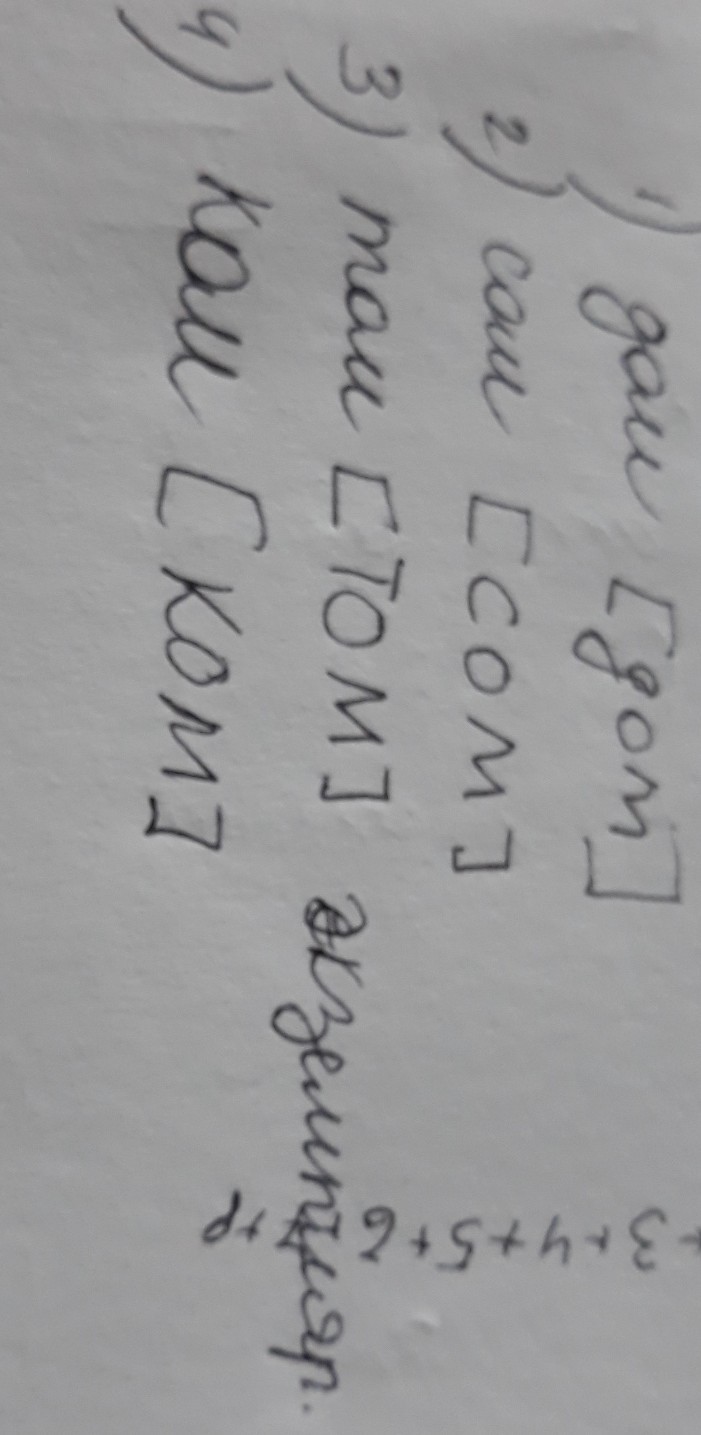 1) дом [дом]
2) сом [сом]
3) том [том] экземпляр.
4) ком [ком]
+3+4+5+6+7+8